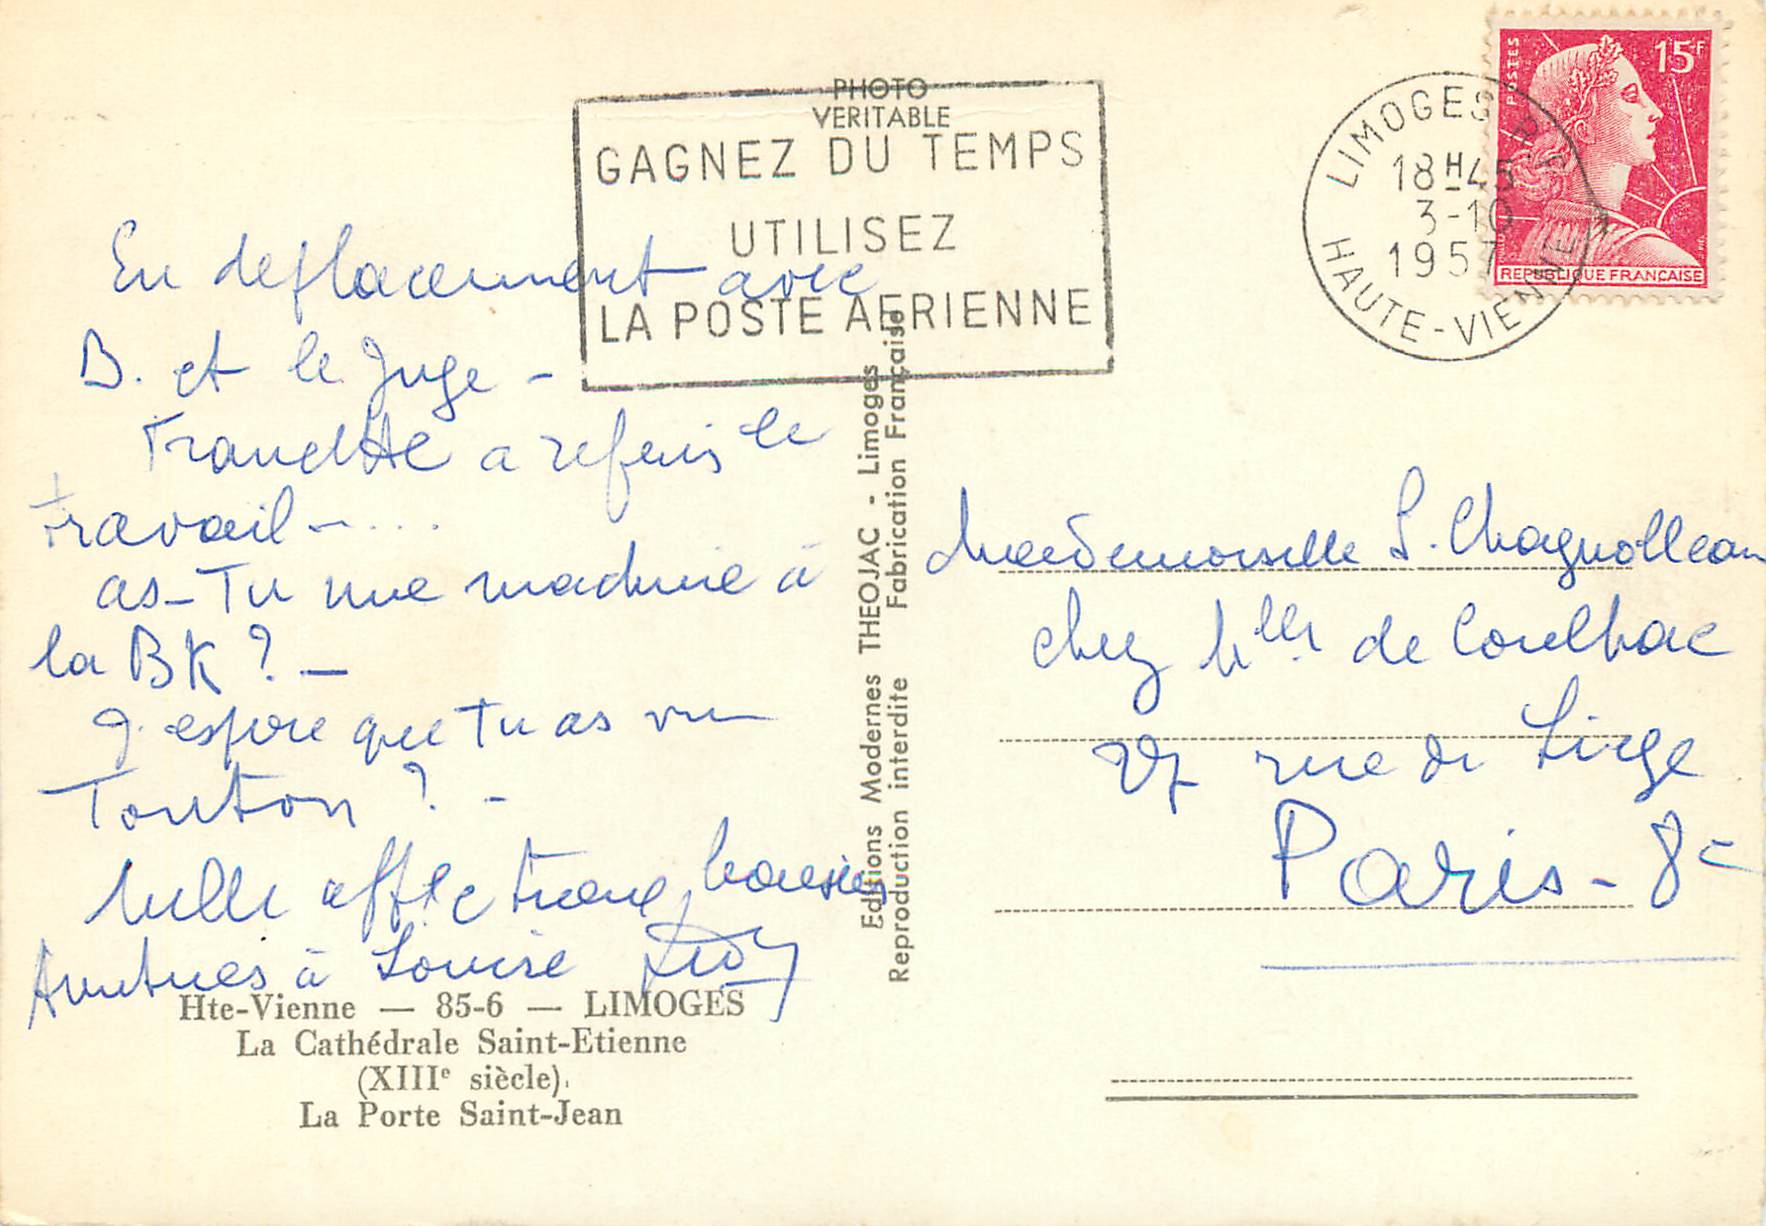 PHOTO
VERITABLE
GAGNEZ DU TEMPS
UTILISEZ
LA POSTE AERIENNE
LIMOGES R.P.
18H45
3-10
1957
HAUTE-VIENNE
POSTES
15F
REPUBLIQUE FRANÇAISE
En deplacement avec
B. et le Juge -
a repris le
travail - ...
as-Tu une machine à
la BK ? -
J. espère que Tu as vu
Tonton ? -
Mille affectueux baisers
à Louise
Hte-Vienne — 85-6 — LIMOGES
La Cathédrale Saint-Etienne
(XIIIe siècle).
La Porte Saint-Jean
Editions Modernes THEOJAC - Limoges
Reproduction interdite Fabrication Française
Mademoiselle S. Chagnolleau
chez Mlle de Coulhac
27 rue de Liège
Paris - 8e